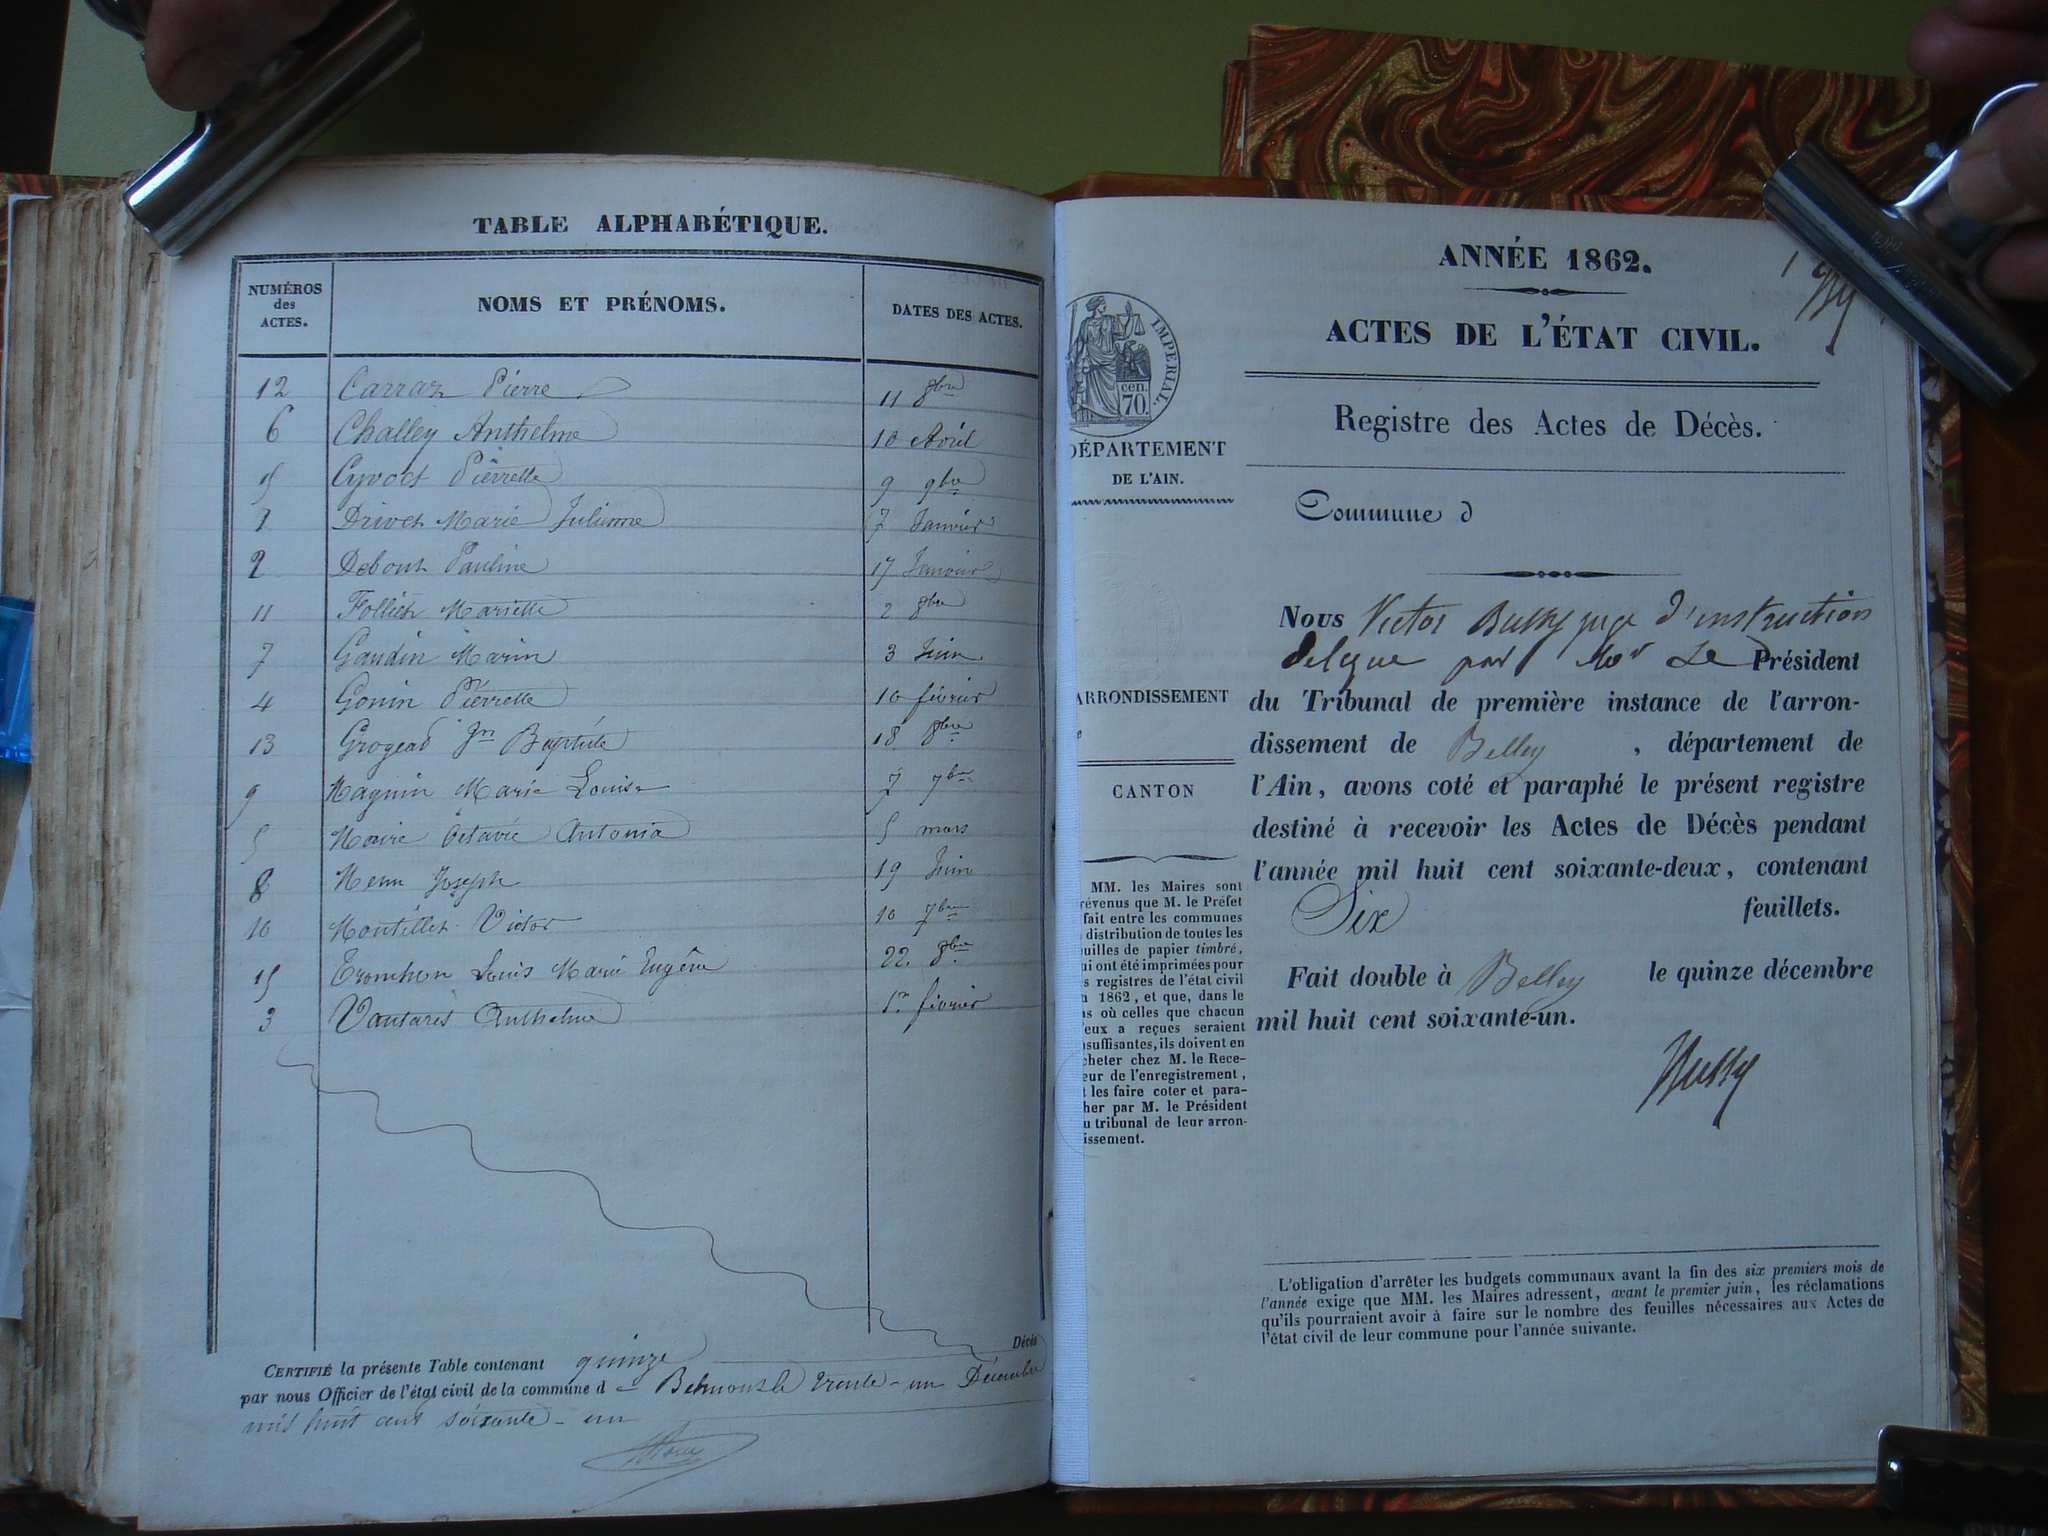 TABLE ALPHABÉTIQUE.
NUMÉROS des ACTES. NOMS ET PRÉNOMS. DATES DES ACTES.
12 Carraz Pierre 11 8bre
6 Challey Anthelme 10 Avril
15 Cyvoct Pierrette 9 9bre
1 Drivet Marie Julienne 7 Janvier
2 Debout Pauline 17 Janvier
11 Folliet Mariette 2 8bre
7 Gaudin Marin 3 Juin
4 Gonin Pierrette 10 février
13 Grogead Jn Baptiste 18 8bre
9 Magnin Marie Louise 7 7bre
5 Maire Octavie Antonia 5 mars
8 Joseph 19 Juin
10 Montillet Victor 10 7bre
15 Tronchon Louis Marie Eugène 22 8bre
3 Vautaret Anthelme 1er février
CERTIFIÉ la présente Table contenant quinze Décès
par nous Officier de l'état civil de la commune d Belmont le trente-un Décembre
mil huit cent soixante-un
ANNÉE 1862.
ACTES DE L'ÉTAT CIVIL.
IMPÉRIAL.
cen. 70.
Registre des Actes de Décès.
DÉPARTEMENT
DE L'AIN.
Commune d
ARRONDISSEMENT
CANTON
MM. les Maires sont
révenus que M. le Préfet
fait entre les communes
distribution de toutes les
uilles de papier timbré,
ui ont été imprimées pour
s registres de l'état civil
n 1862, et que, dans le
as où celles que chacun
eux a reçues seraient
nsuffisantes, ils doivent en
cheter chez M. le Rece-
eur de l'enregistrement,
t les faire coter et para-
her par M. le Président
u tribunal de leur arron-
issement.
Nous Victor Bussy juge d'instruction
delegue par Mr Le Président
du Tribunal de première instance de l'arron-
dissement de Belley , département de
l'Ain, avons coté et paraphé le présent registre
destiné à recevoir les Actes de Décès pendant
l'année mil huit cent soixante-deux, contenant
Six feuillets.
Fait double à Belley le quinze décembre
mil huit cent soixante-un.
Bussy
L'obligation d'arrêter les budgets communaux avant la fin des six premiers mois de
l'année exige que MM. les Maires adressent, avant le premier juin, les réclamations
qu'ils pourraient avoir à faire sur le nombre des feuilles nécessaires aux Actes de
l'état civil de leur commune pour l'année suivante.